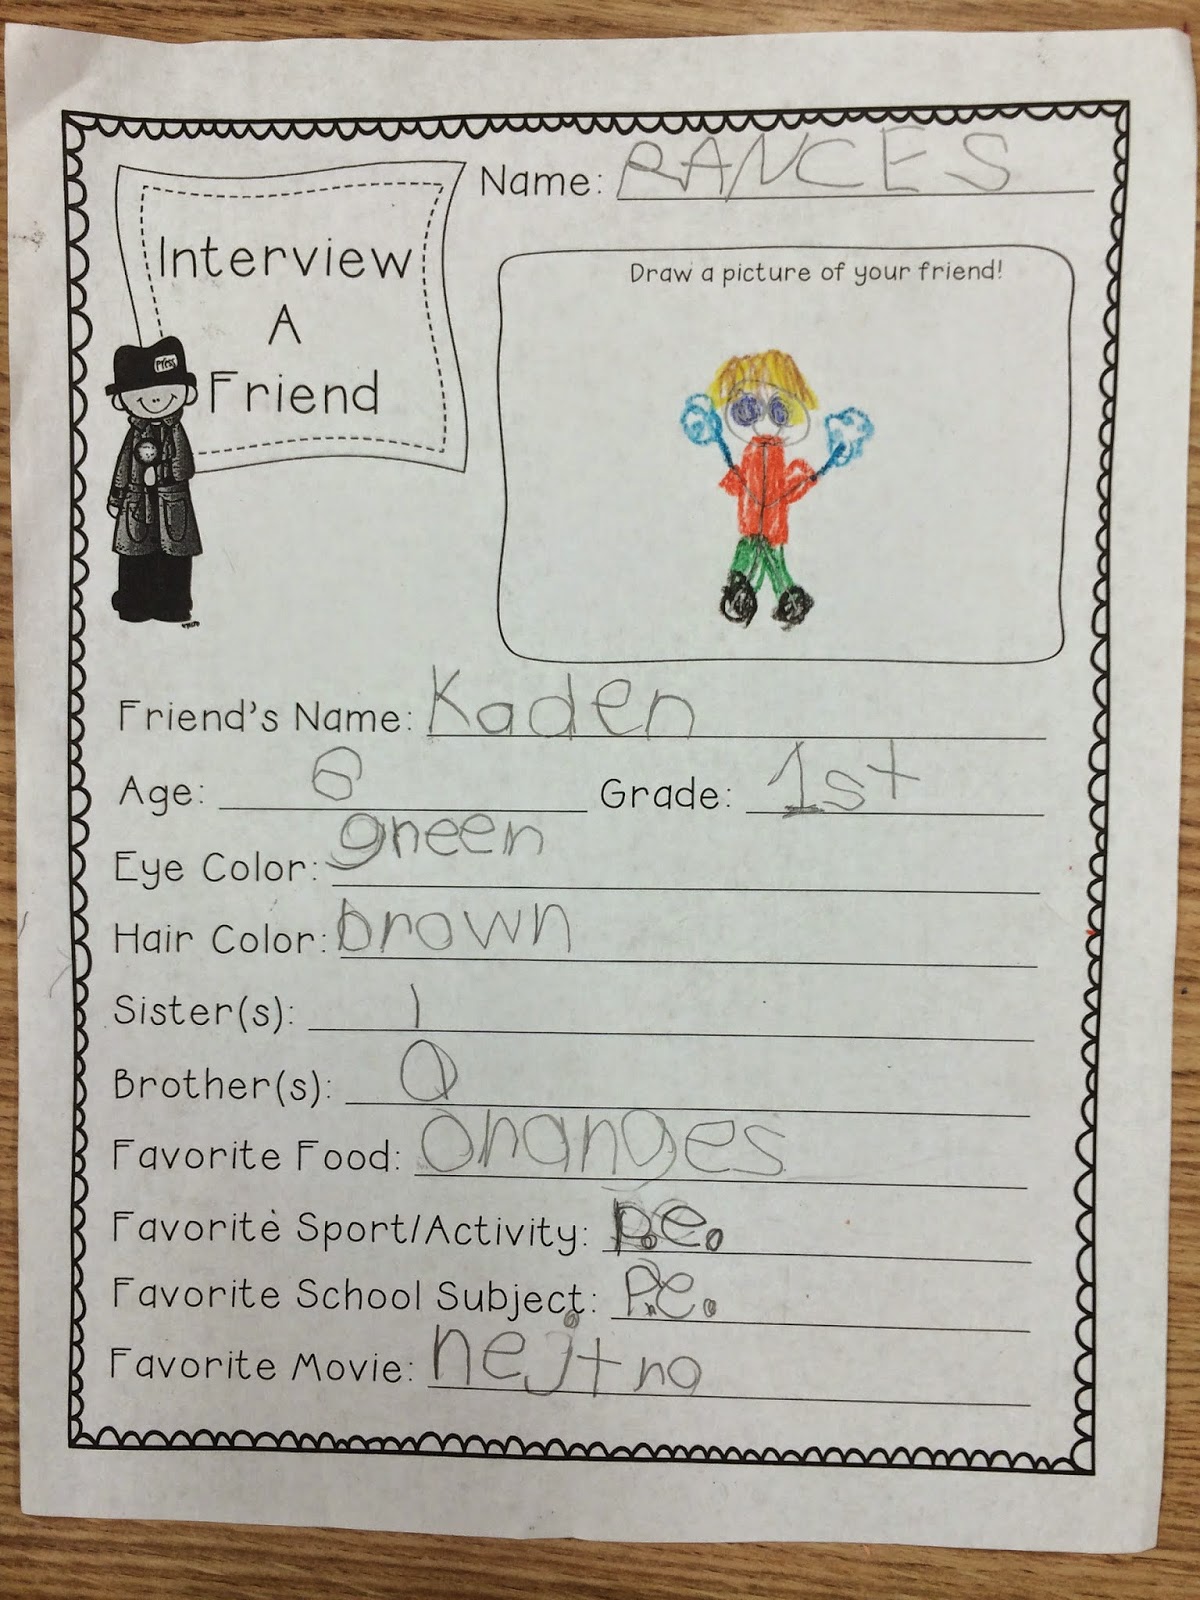 Name: RANCES
Interview
A
Friend
press
Draw a picture of your friend!
Friend's Name: Kaden
Age: 6 Grade: 1st
Eye Color: green
Hair Color: brown
Sister(s): 1
Brother(s): 0
Favorite Food: oranges
Favorite Sport/Activity: p.e.
Favorite School Subject: P.e.
Favorite Movie: nejtro